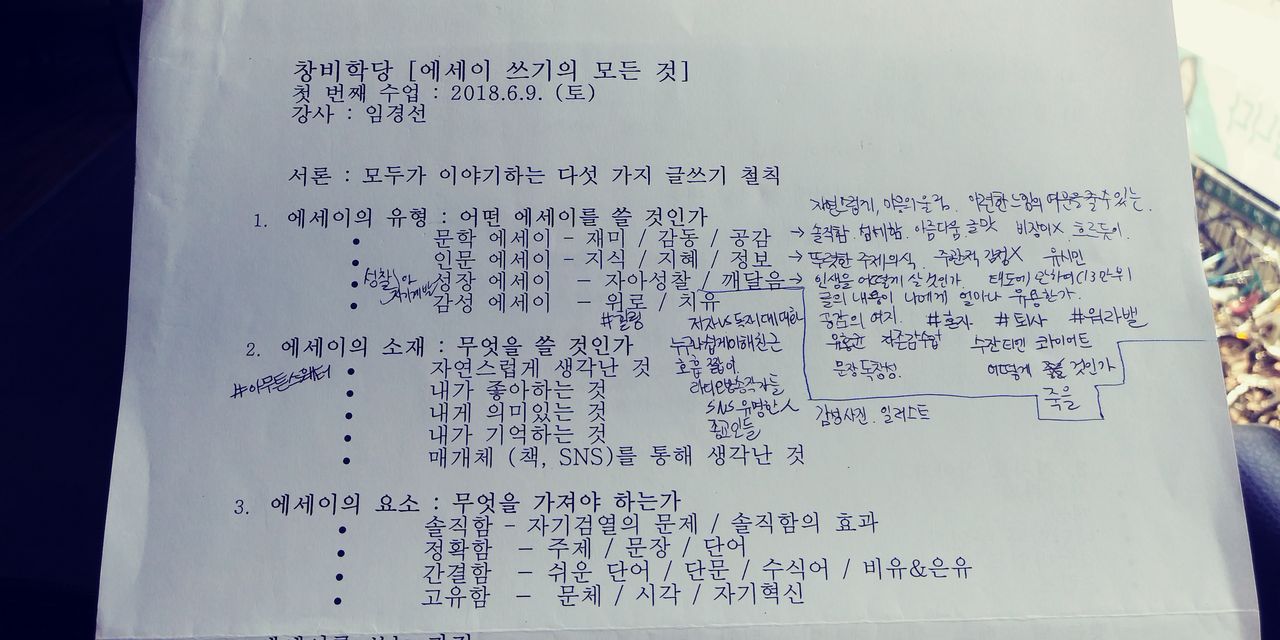 창비학당 [에세이 쓰기의 모든 것]
첫 번째 수업 : 2018.6.9. (토)
강사 : 임경선
서론 : 모두가 이야기하는 다섯 가지 글쓰기 철칙
1. 에세이의 유형 : 어떤 에세이를 쓸 것인가
자연스럽게, 마음의 울림. 아련한 느낌의 여운을 줄 수 있는.
• 문학 에세이 - 재미 / 감동 / 공감 → 솔직함. 섬세함. 아름다움 글맛 비장미X 흐르듯이.
• 인문 에세이 - 지식 / 지혜 / 정보 → 뚜렷한 주제의식. 주관적 감정X 유시민
• 성장 에세이 - 자아성찰 / 깨달음 → 인생을 어떻게 살 것인가. 태도에 관하여(13만부)
성찰 자기계발
글의 내용이 나에게 얼마나 유용한가.
• 감성 에세이 - 위로 / 치유
#힐링 저자vs독자 1대1대화
공감의 여지. #혼자 #퇴사 #워라밸
2. 에세이의 소재 : 무엇을 쓸 것인가
누구라쉽게이해친근
자존감수업 수잔 콰이어트
• 자연스럽게 생각난 것
호흡 짧여.
문장독창성. 어떻게 죽을 것인가
#아무튼스웨터
• 내가 좋아하는 것
라디오방송작가들
• 내게 의미있는 것
SNS 유명한人
감성사진. 일러스트
• 내가 기억하는 것
종교인들
• 매개체 (책, SNS)를 통해 생각난 것
3. 에세이의 요소 : 무엇을 가져야 하는가
• 솔직함 - 자기검열의 문제 / 솔직함의 효과
• 정확함 - 주제 / 문장 / 단어
• 간결함 - 쉬운 단어 / 단문 / 수식어 / 비유&은유
• 고유함 - 문체 / 시각 / 자기혁신